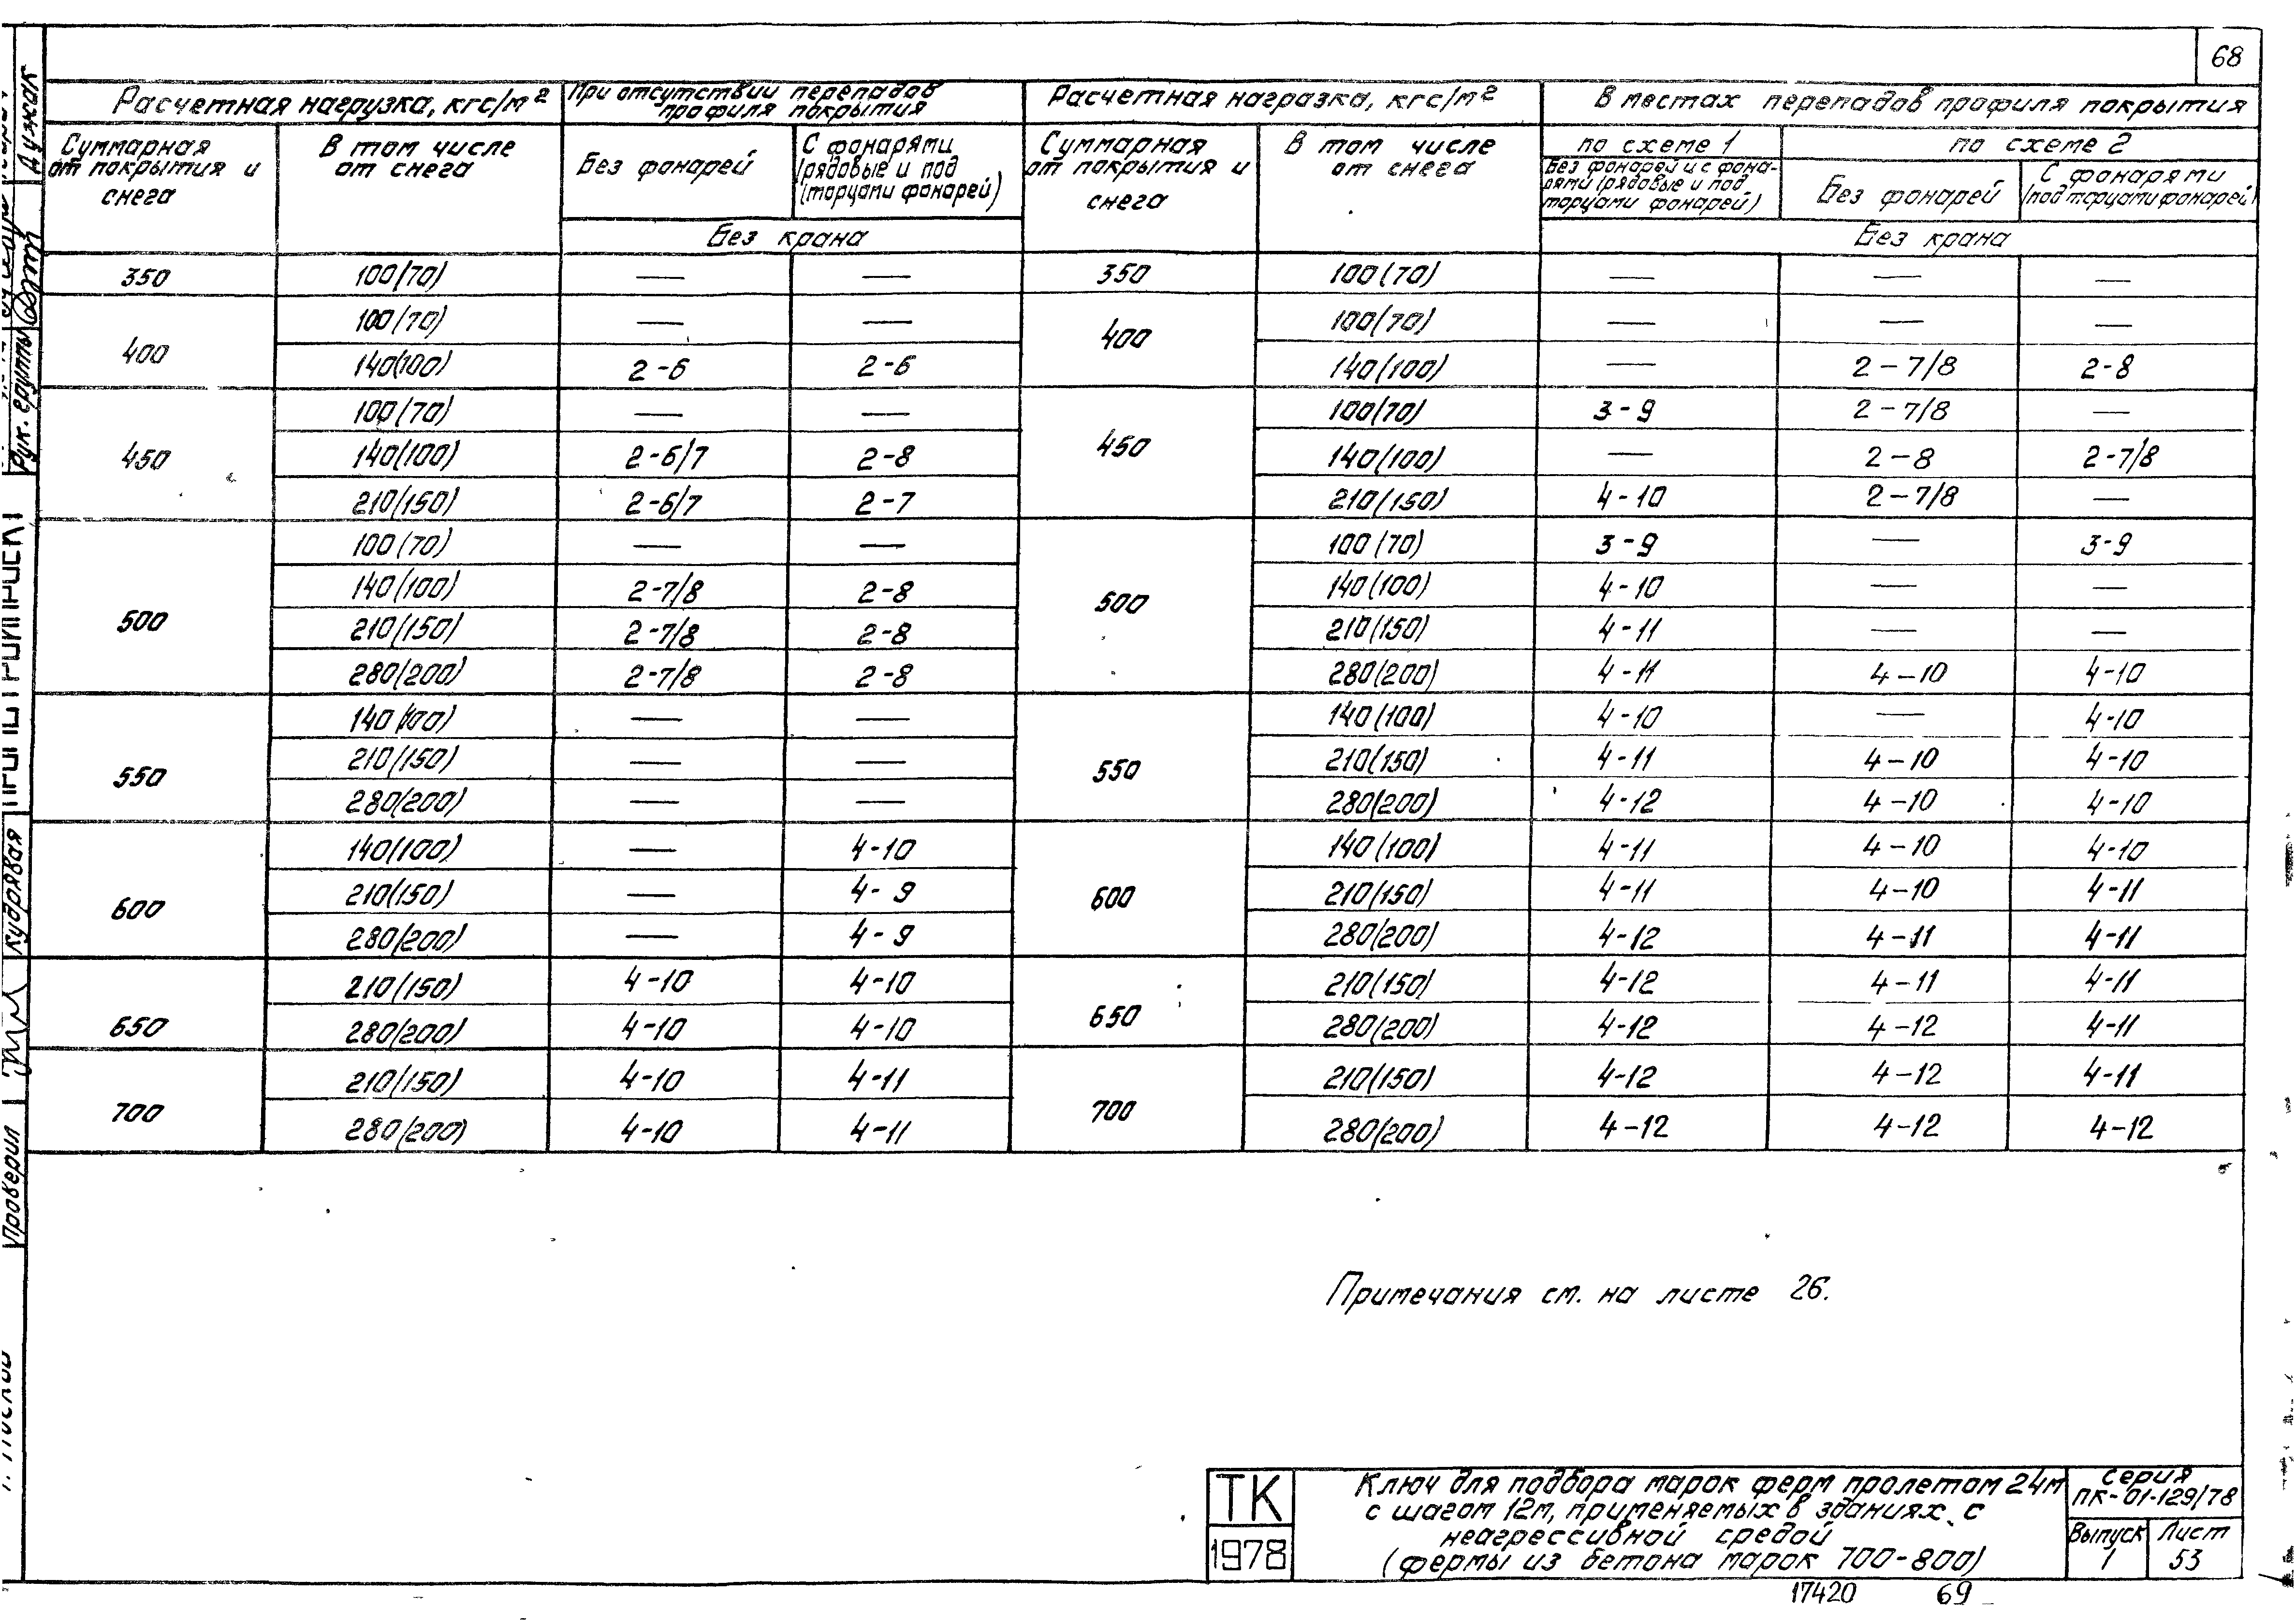 68
Расчетная нагрузка, кгс/м²
При отсутствии перепадов профиля покрытия
Расчетная награзка, кгс/м²
В местах перепадов профиля покрытия
Суммарная от покрытия и снега
В том числе от снега
Без фонарей
С фонарями (рядовые и под торцами фонарей)
Суммарная от покрытия и снега
В том числе от снега
по схеме 1
по схеме 2
Без фонарей и с фонарями (рядовые и под торцами фонарей)
Без фонарей
С фонарями (под торцами фонарей)
Без крана
Без крана
350 100(70) — — 350 100(70) — — —
400 100(70) — — 400 100(70) — — —
140(100) 2-6 2-6 140(100) — 2-7/8 2-8
450 100(70) — — 450 100(70) 3-9 2-7/8 —
140(100) 2-6/7 2-8 140(100) — 2-8 2-7/8
210(150) 2-6/7 2-7 210(150) 4-10 2-7/8 —
500 100(70) — — 500 100(70) 3-9 — 3-9
140(100) 2-7/8 2-8 140(100) 4-10 — —
210(150) 2-7/8 2-8 210(150) 4-11 — —
280(200) 2-7/8 2-8 280(200) 4-11 4-10 4-10
550 140(100) — — 550 140(100) 4-10 — 4-10
210(150) — — 210(150) 4-11 4-10 4-10
280(200) — — 280(200) 4-12 4-10 4-10
600 140(100) — 4-10 600 140(100) 4-11 4-10 4-10
210(150) — 4-9 210(150) 4-11 4-10 4-11
280(200) — 4-9 280(200) 4-12 4-11 4-11
650 210(150) 4-10 4-10 650 210(150) 4-12 4-11 4-11
280(200) 4-10 4-10 280(200) 4-12 4-12 4-11
700 210(150) 4-10 4-11 700 210(150) 4-12 4-12 4-11
280(200) 4-10 4-11 280(200) 4-12 4-12 4-12
Примечания см. на листе 26.
ТК
1978
Ключ для подбора марок ферм пролетом 24м
с шагом 12м, применяемых в зданиях с
неагрессивной средой
(фермы из бетона марок 700-800)
серия
ПК-01-129/78
Выпуск 1
Лист 53
17420 69
Рук. группы
Дужак
Проверил
Кудрявая